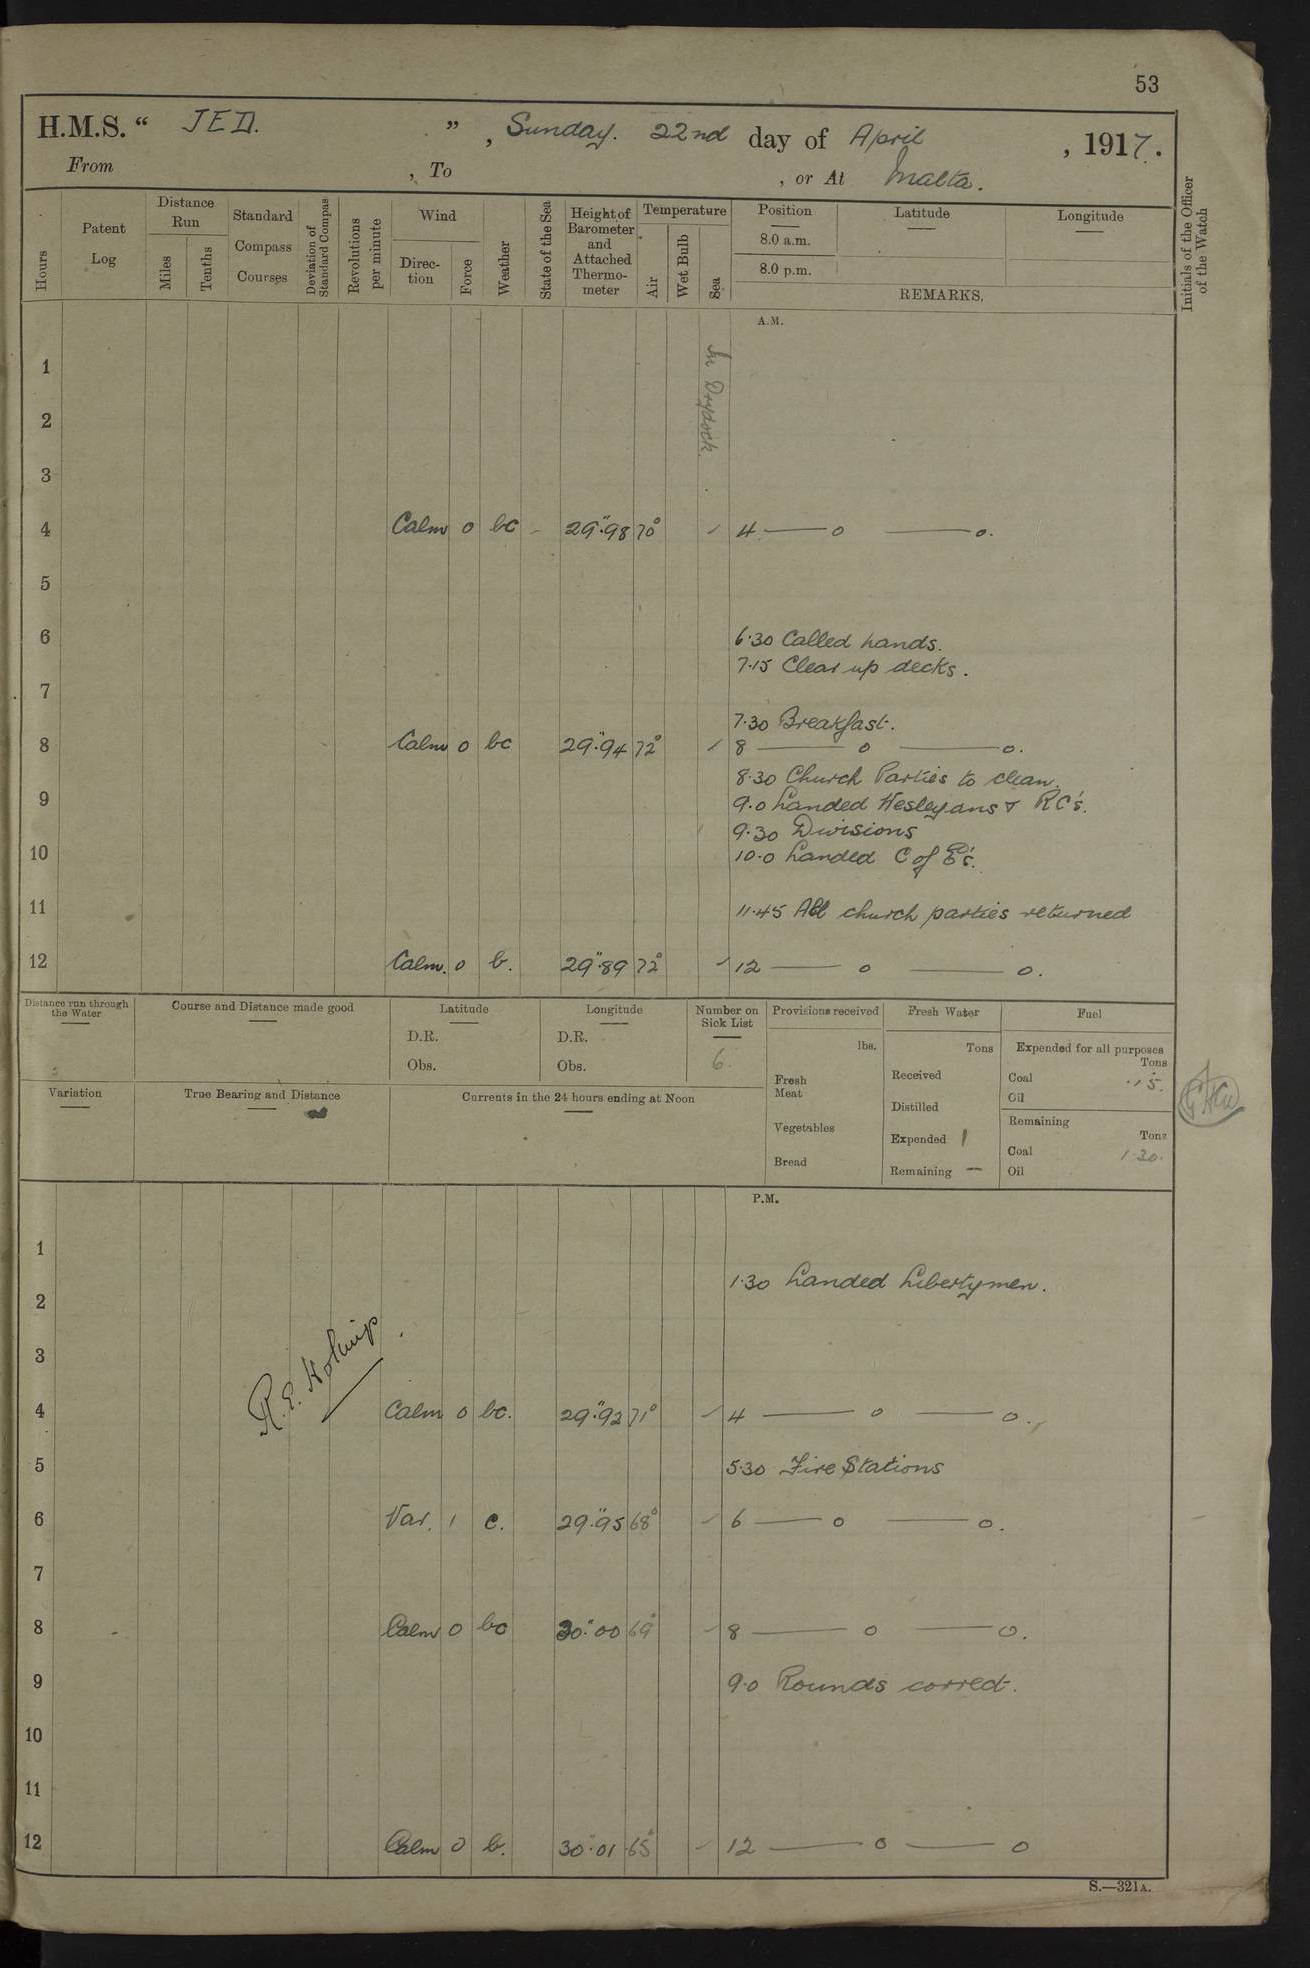 53
H.M.S. " JED. ", Sunday. 22nd day of April, 1917.
From , To , or At Malta.
Hours
Patent Log
Distance Run
Miles
Tenths
Standard Compass Courses
Deviation of Standard Compass
Revolutions per minute
Wind
Direction
Force
Weather
State of the Sea
Height of Barometer and Attached Thermometer
Temperature
Air
Wet Bulb
Sea
Position
8.0 a.m.
8.0 p.m.
Latitude
Longitude
REMARKS.
Initials of the Officer of the Watch
A.M.
In Drydock.
1
2
3
4 Calm 0 bc - 29".98 70° 4 —— o —— o.
5
6 6.30 Called hands.
7.15 Clear up decks.
7
7.30 Breakfast.
8 Calm 0 bc 29".94 72° 8 —— o —— o.
8.30 Church Parties to clean.
9 9.0 Landed Wesleyans & RC's.
9.30 Divisions
10 10.0 Landed C of E's.
11 11.45 All church parties returned
12 Calm. 0 b. 29".89 72° 12 —— o —— o.
Distance run through the Water
Course and Distance made good
Latitude
D.R.
Obs.
Longitude
D.R.
Obs.
Number on Sick List
6.
Provisions received
lbs.
Fresh Meat
Vegetables
Bread
Fresh Water
Tons
Received
Distilled
Expended 1
Remaining —
Fuel
Expended for all purposes
Tons
Coal 5.
Oil
Remaining
Tons
Coal 130.
Oil
Variation
True Bearing and Distance
Currents in the 24 hours ending at Noon
P.M.
1
1.30 Landed Libertymen.
2
3
R.E.
4 Calm 0 bc. 29".92 71° 4 —— o —— o.
5 5.30 Fire Stations
6 Var. 1 c. 29".95 68° 6 —— o —— o.
7
8 Calm 0 bc 30".00 69° 8 —— o —— o.
9 9.0 Rounds correct.
10
11
12 Calm 0 b. 30".01 65° 12 —— o —— o
S.—321A.